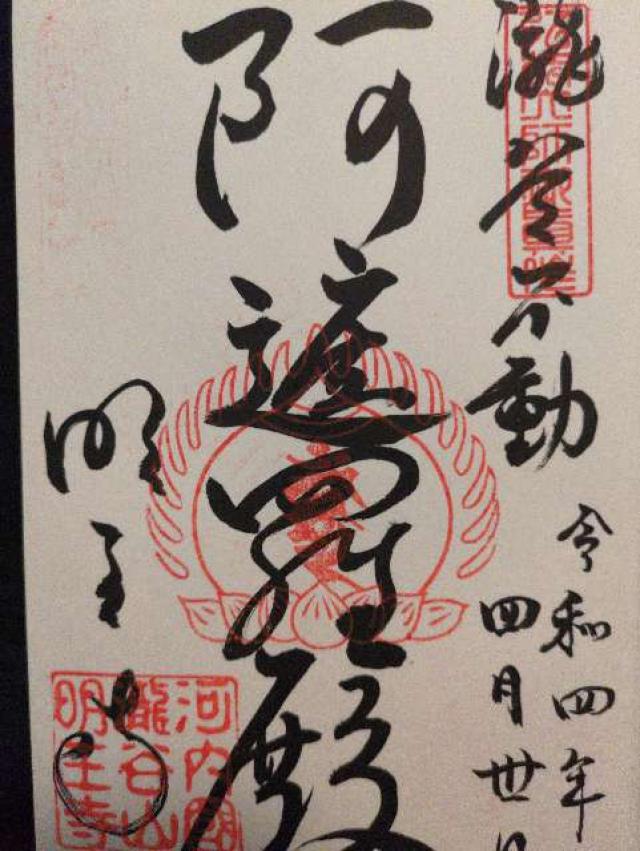 瀧谷不動
令和四年
四月丗日
阿遮羅殿
明王寺
河内國
瀧谷山
明王寺